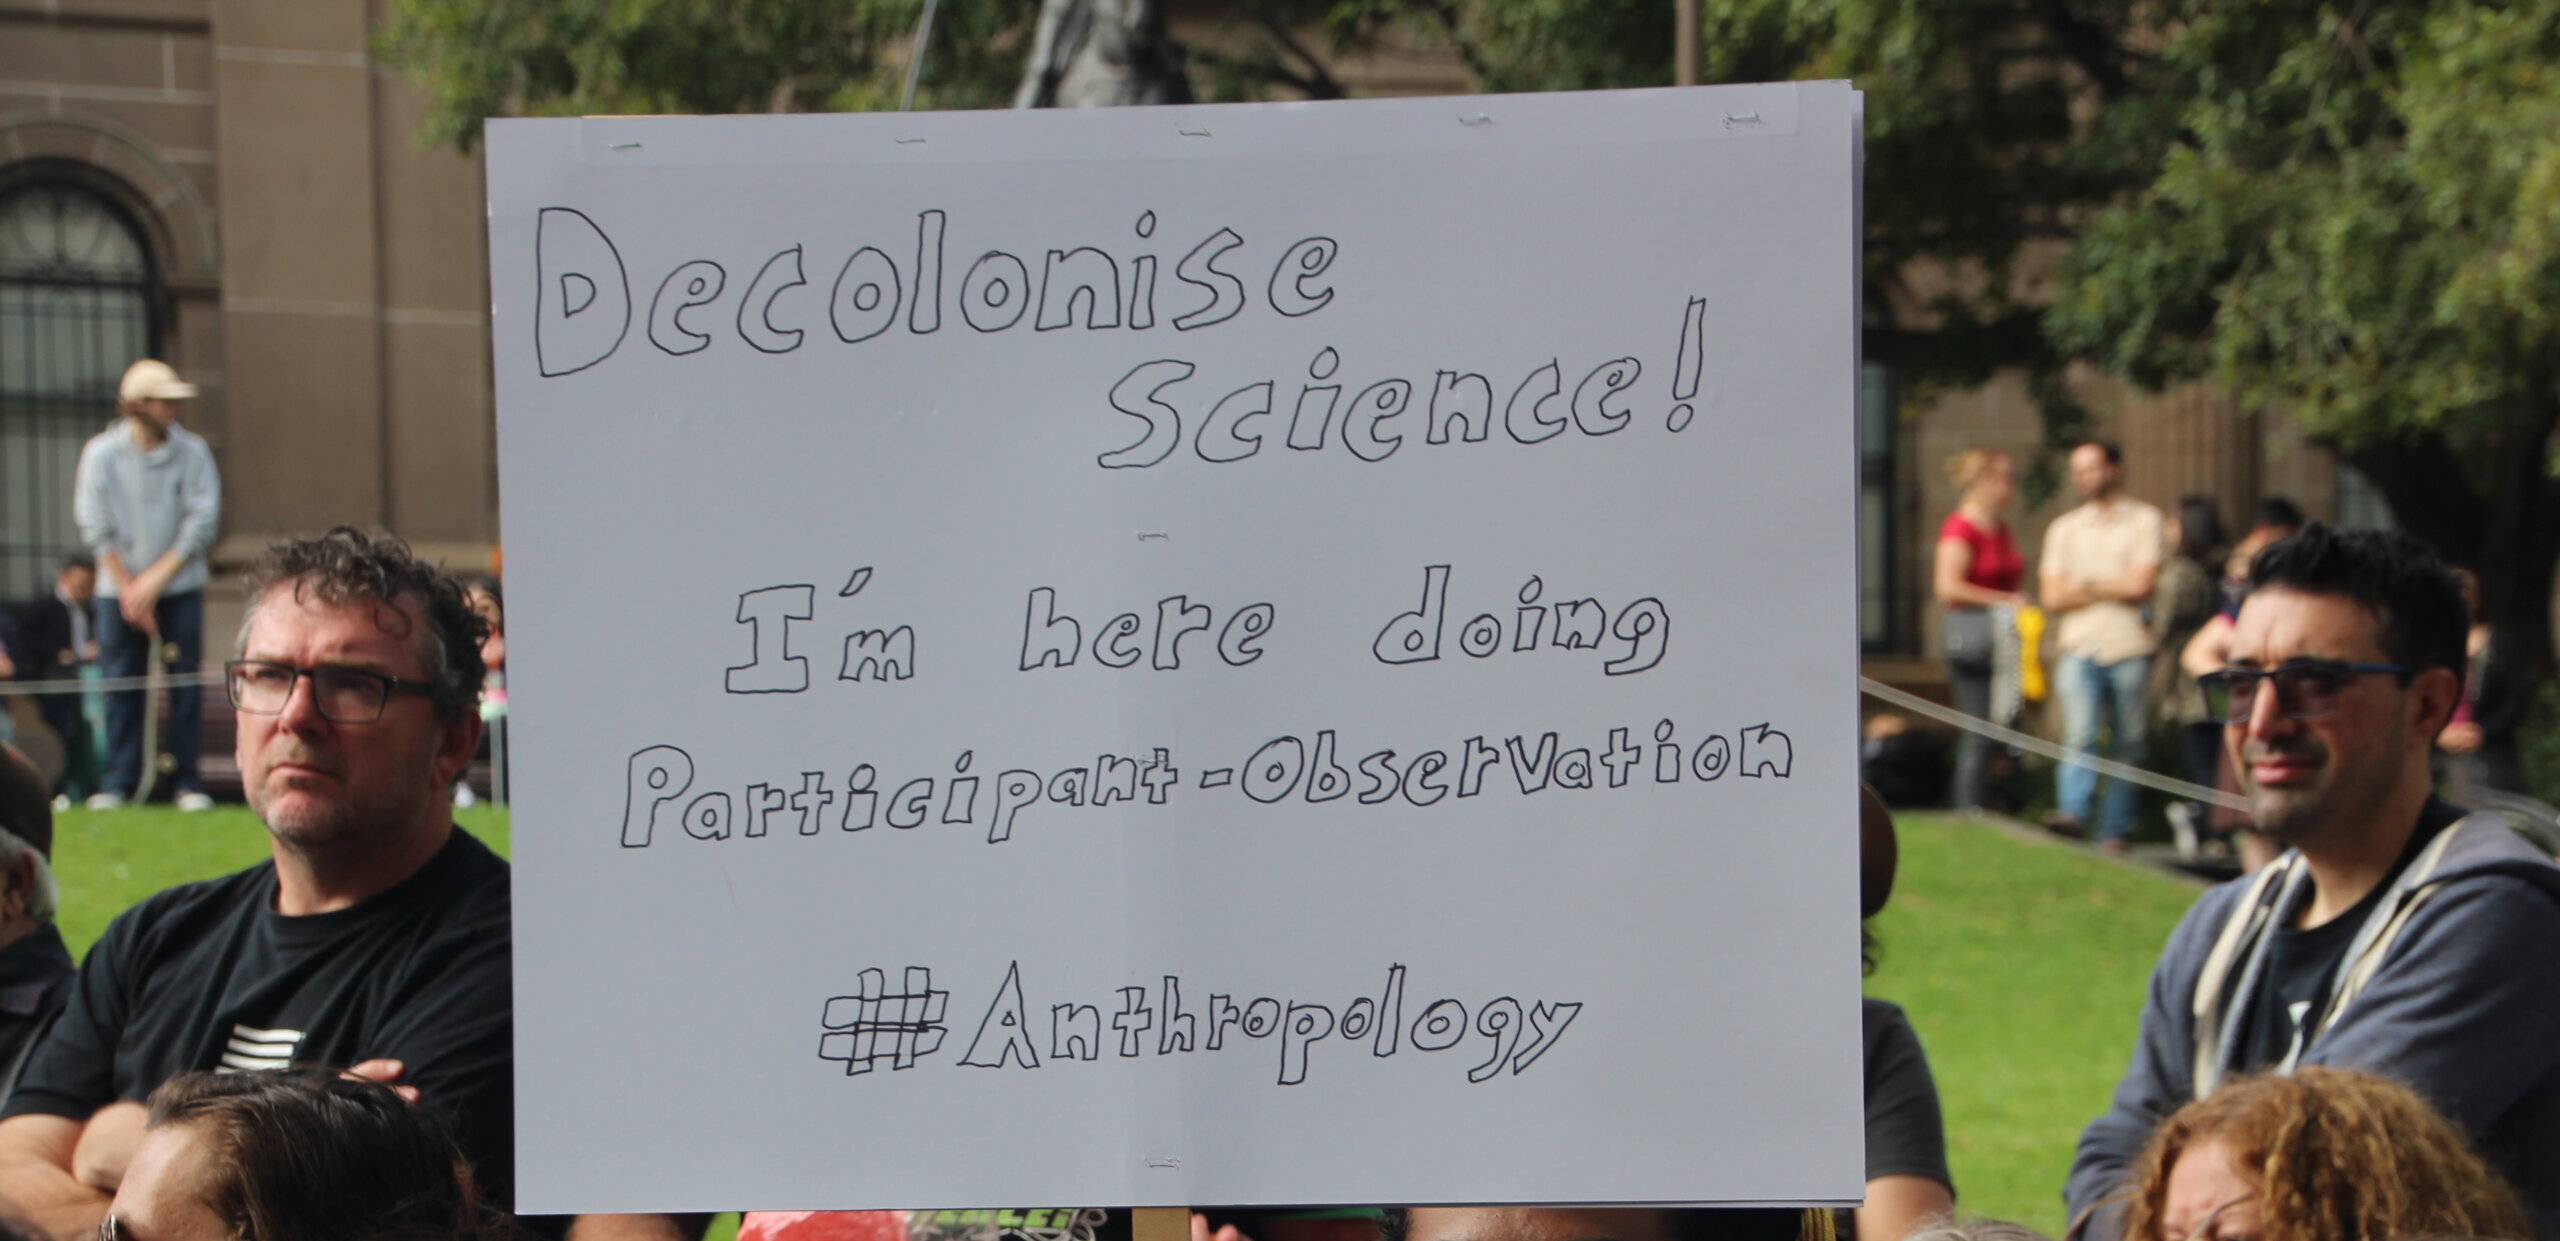 Decolonise
Science!
I'm here doing
Participant-Observation
#Anthropology